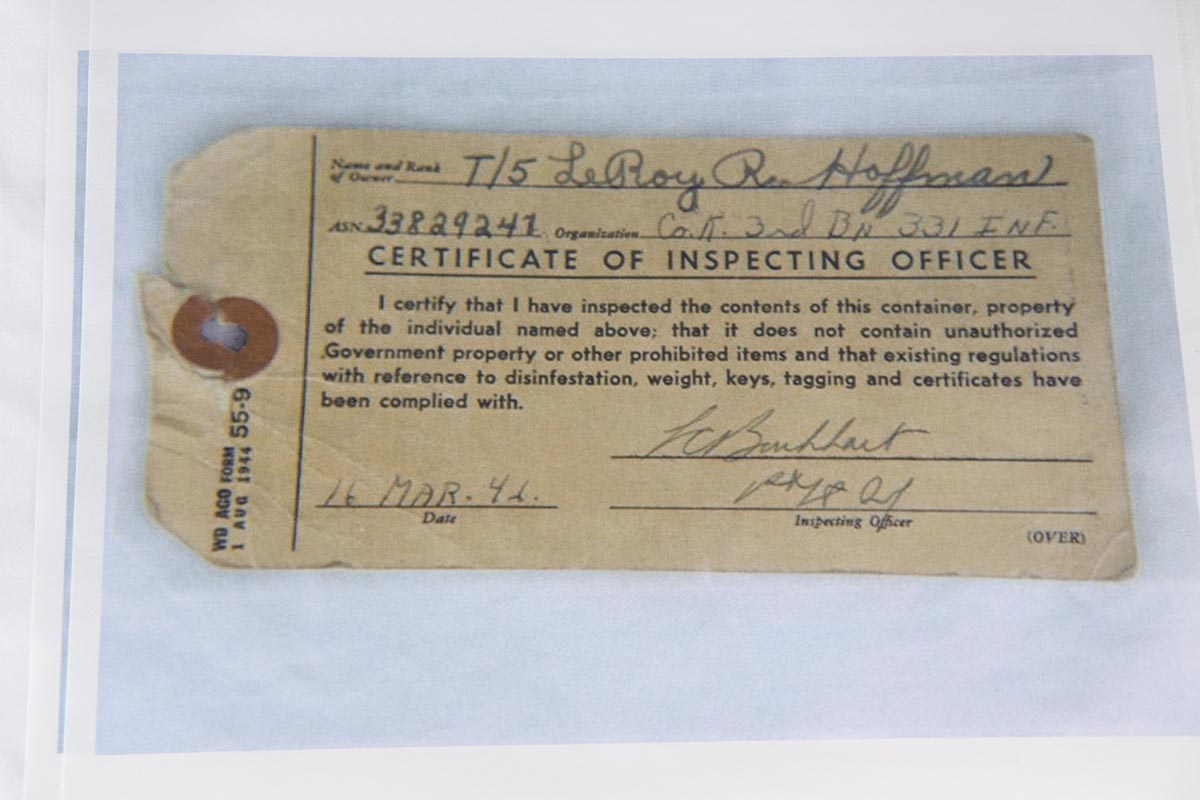 Name and Rank
of Owner T/5 LeRoy R. Hoffman
ASN 33829241 Organization Co. K. 3rd BN 331 INF.
CERTIFICATE OF INSPECTING OFFICER
I certify that I have inspected the contents of this container, property
of the individual named above; that it does not contain unauthorized
Government property or other prohibited items and that existing regulations
with reference to disinfestation, weight, keys, tagging and certificates have
been complied with.
16 MAR.
Date
Inspecting Officer
(OVER)
WD AGO FORM 55-9
1 AUG 1944